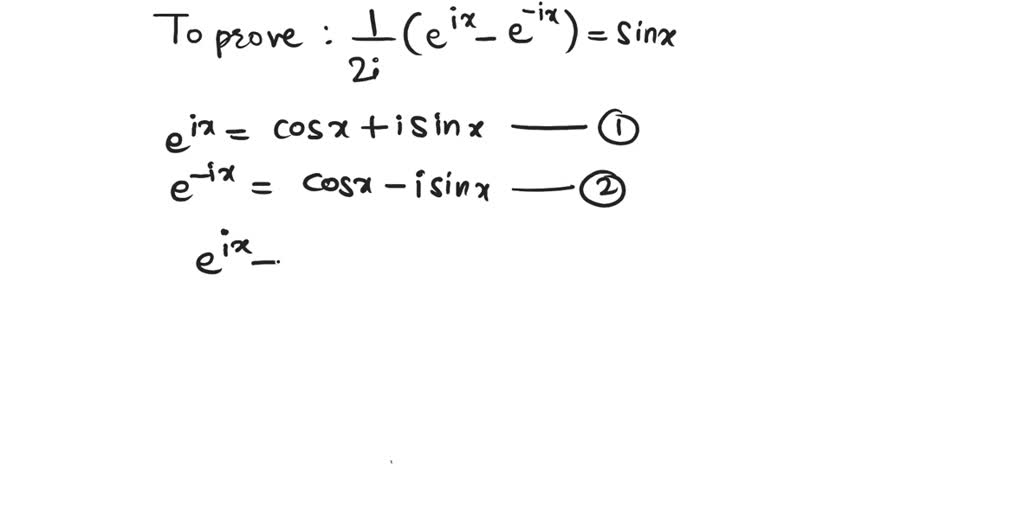 To prove : 1/2i (e^ix - e^-ix) = sinx
e^ix = cosx + i sinx —— ①
e^-ix = cosx - i sinx —— ②
e^ix -